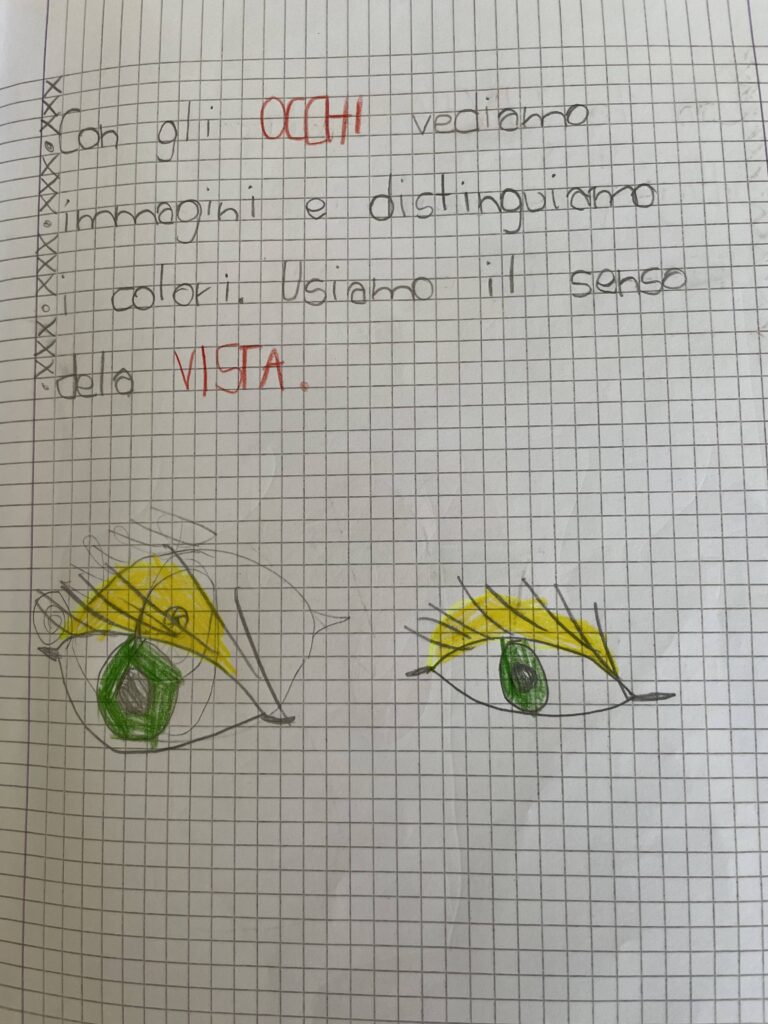 Con gli OCCHI vediamo
immagini e distinguiamo
i colori. Usiamo il senso
dela VISTA.